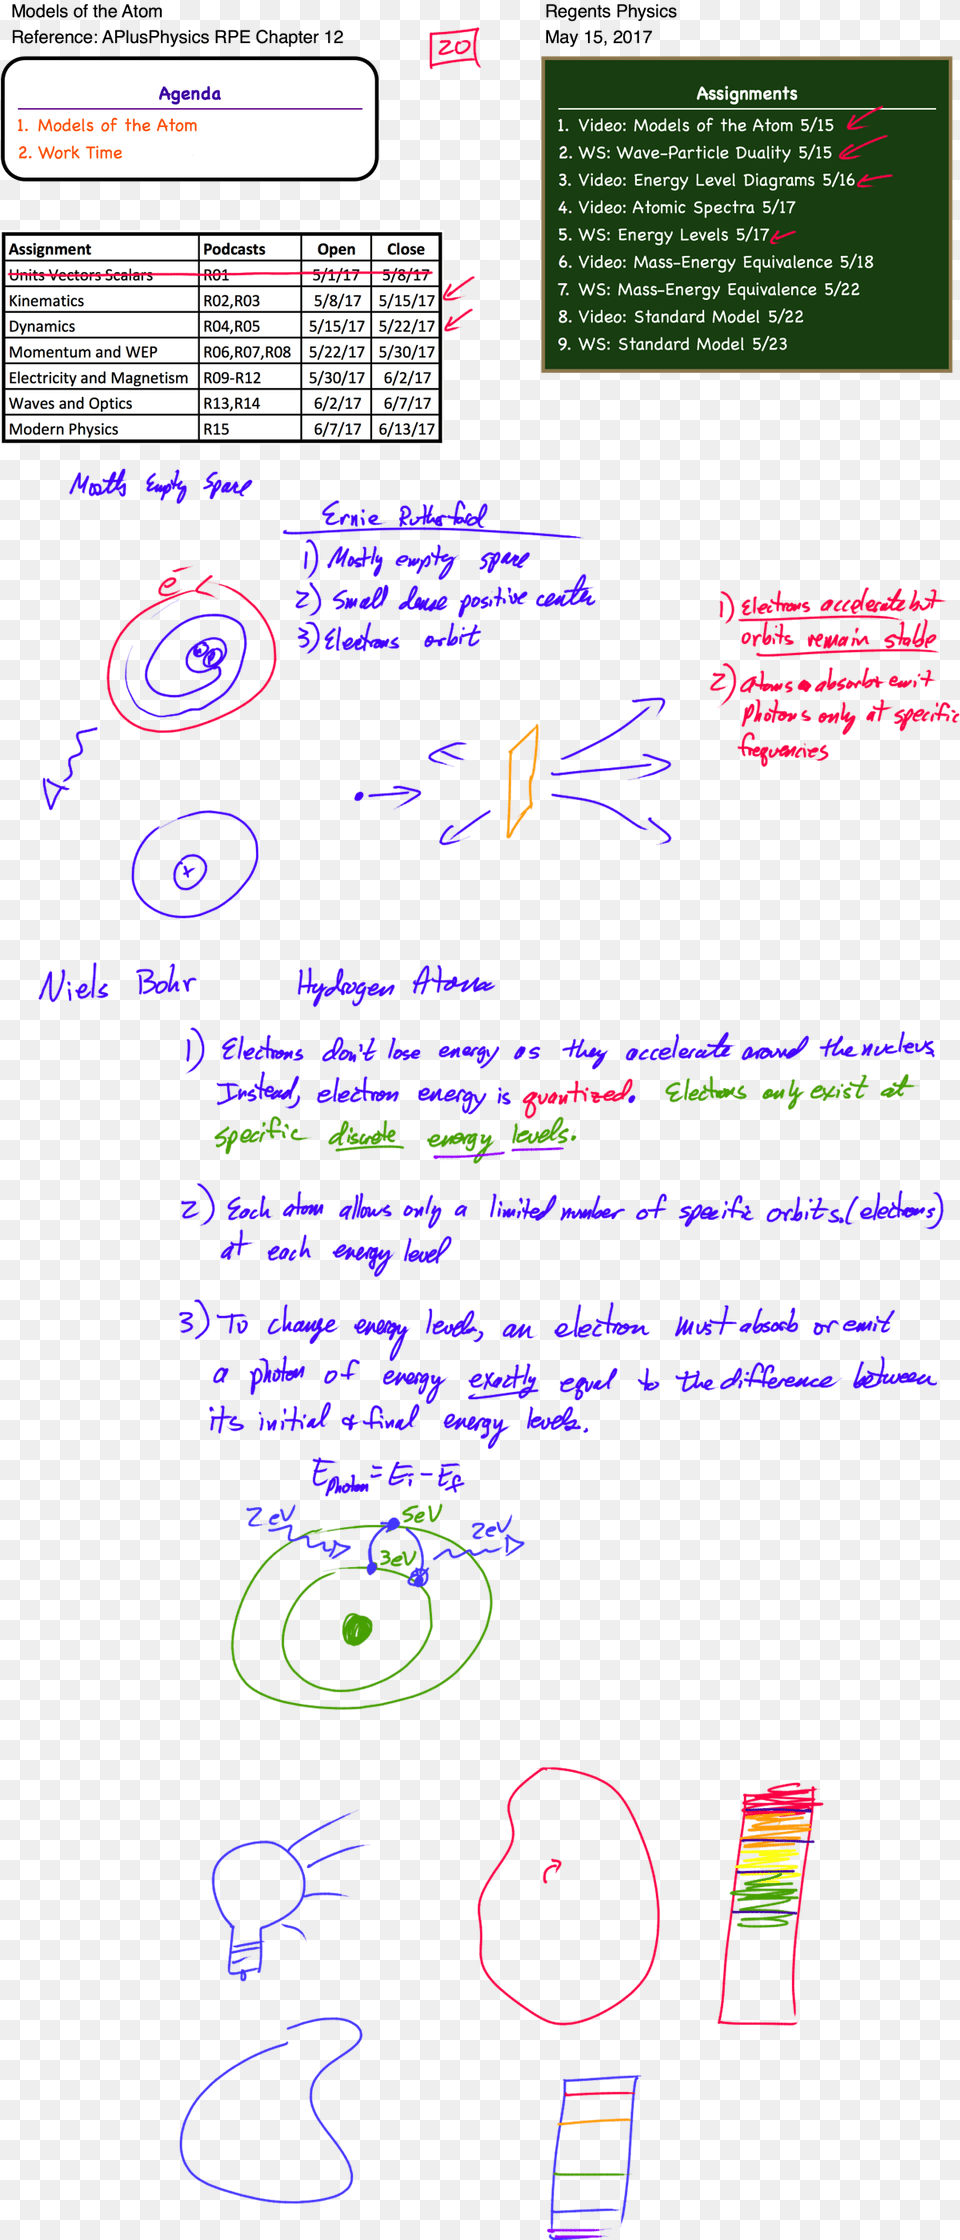 Models of the Atom
Reference: APlusPhysics RPE Chapter 12
20
Regents Physics
May 15, 2017
Agenda
1. Models of the Atom
2. Work Time
Assignments
1. Video: Models of the Atom 5/15
2. WS: Wave-Particle Duality 5/15
3. Video: Energy Level Diagrams 5/16
4. Video: Atomic Spectra 5/17
5. WS: Energy Levels 5/17
6. Video: Mass-Energy Equivalence 5/18
7. WS: Mass-Energy Equivalence 5/22
8. Video: Standard Model 5/22
9. WS: Standard Model 5/23
Assignment Podcasts Open Close
Units Vectors Scalars R01 5/1/17 5/8/17
Kinematics R02,R03 5/8/17 5/15/17
Dynamics R04,R05 5/15/17 5/22/17
Momentum and WEP R06,R07,R08 5/22/17 5/30/17
Electricity and Magnetism R09-R12 5/30/17 6/2/17
Waves and Optics R13,R14 6/2/17 6/7/17
Modern Physics R15 6/7/17 6/13/17
Mostly Empty Space
Ernie Rutherford
1) Mostly empty space
2) Small dense positive center
3) Electrons orbit
e-
1) Electrons accelerate but
orbits remain stable
2) Atoms absorb + emit
photons only at specific
frequencies
+
Niels Bohr Hydrogen Atom
1) Electrons don't lose energy as they accelerate around the nucleus.
Instead, electron energy is quantized. Electrons only exist at
specific discrete energy levels.
2) Each atom allows only a limited number of specific orbits. (electrons)
at each energy level
3) To change energy levels, an electron must absorb or emit
a photon of energy exactly equal to the difference between
its initial & final energy levels.
Ephoton = Ei - Ef
2eV 5eV 2eV
3eV